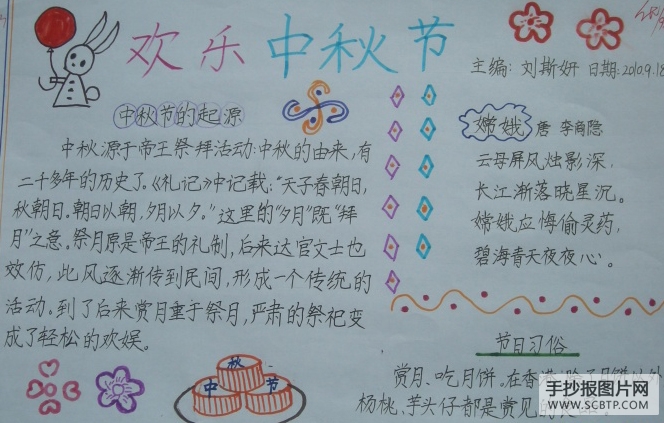 欢乐中秋节
主编：刘斯妍 日期：2010.9.18
中秋节的起源
中秋源于帝王祭拜活动：中秋的由来，有
二千多年的历史了。《礼记》中记载："天子春朝日，
秋朝日。朝日以朝，夕月以夕。"这里的"夕月"既"拜
月"之意。祭月原是帝王的礼制，后来达官文士也
效仿，此风逐渐传到民间，形成一个传统的
活动。到了后来赏月重于祭月，严肃的祭祀变
成了轻松的欢娱。
嫦娥 唐 李商隐
云母屏风烛影深，
长江渐落晓星沉。
嫦娥应悔偷灵药，
碧海青天夜夜心。
节日习俗
赏月、吃月饼。在香港，除了月饼以外
杨桃、芋头仔都是赏见的
中 秋 节
手抄报图片网
WWW.SCBTP.COM